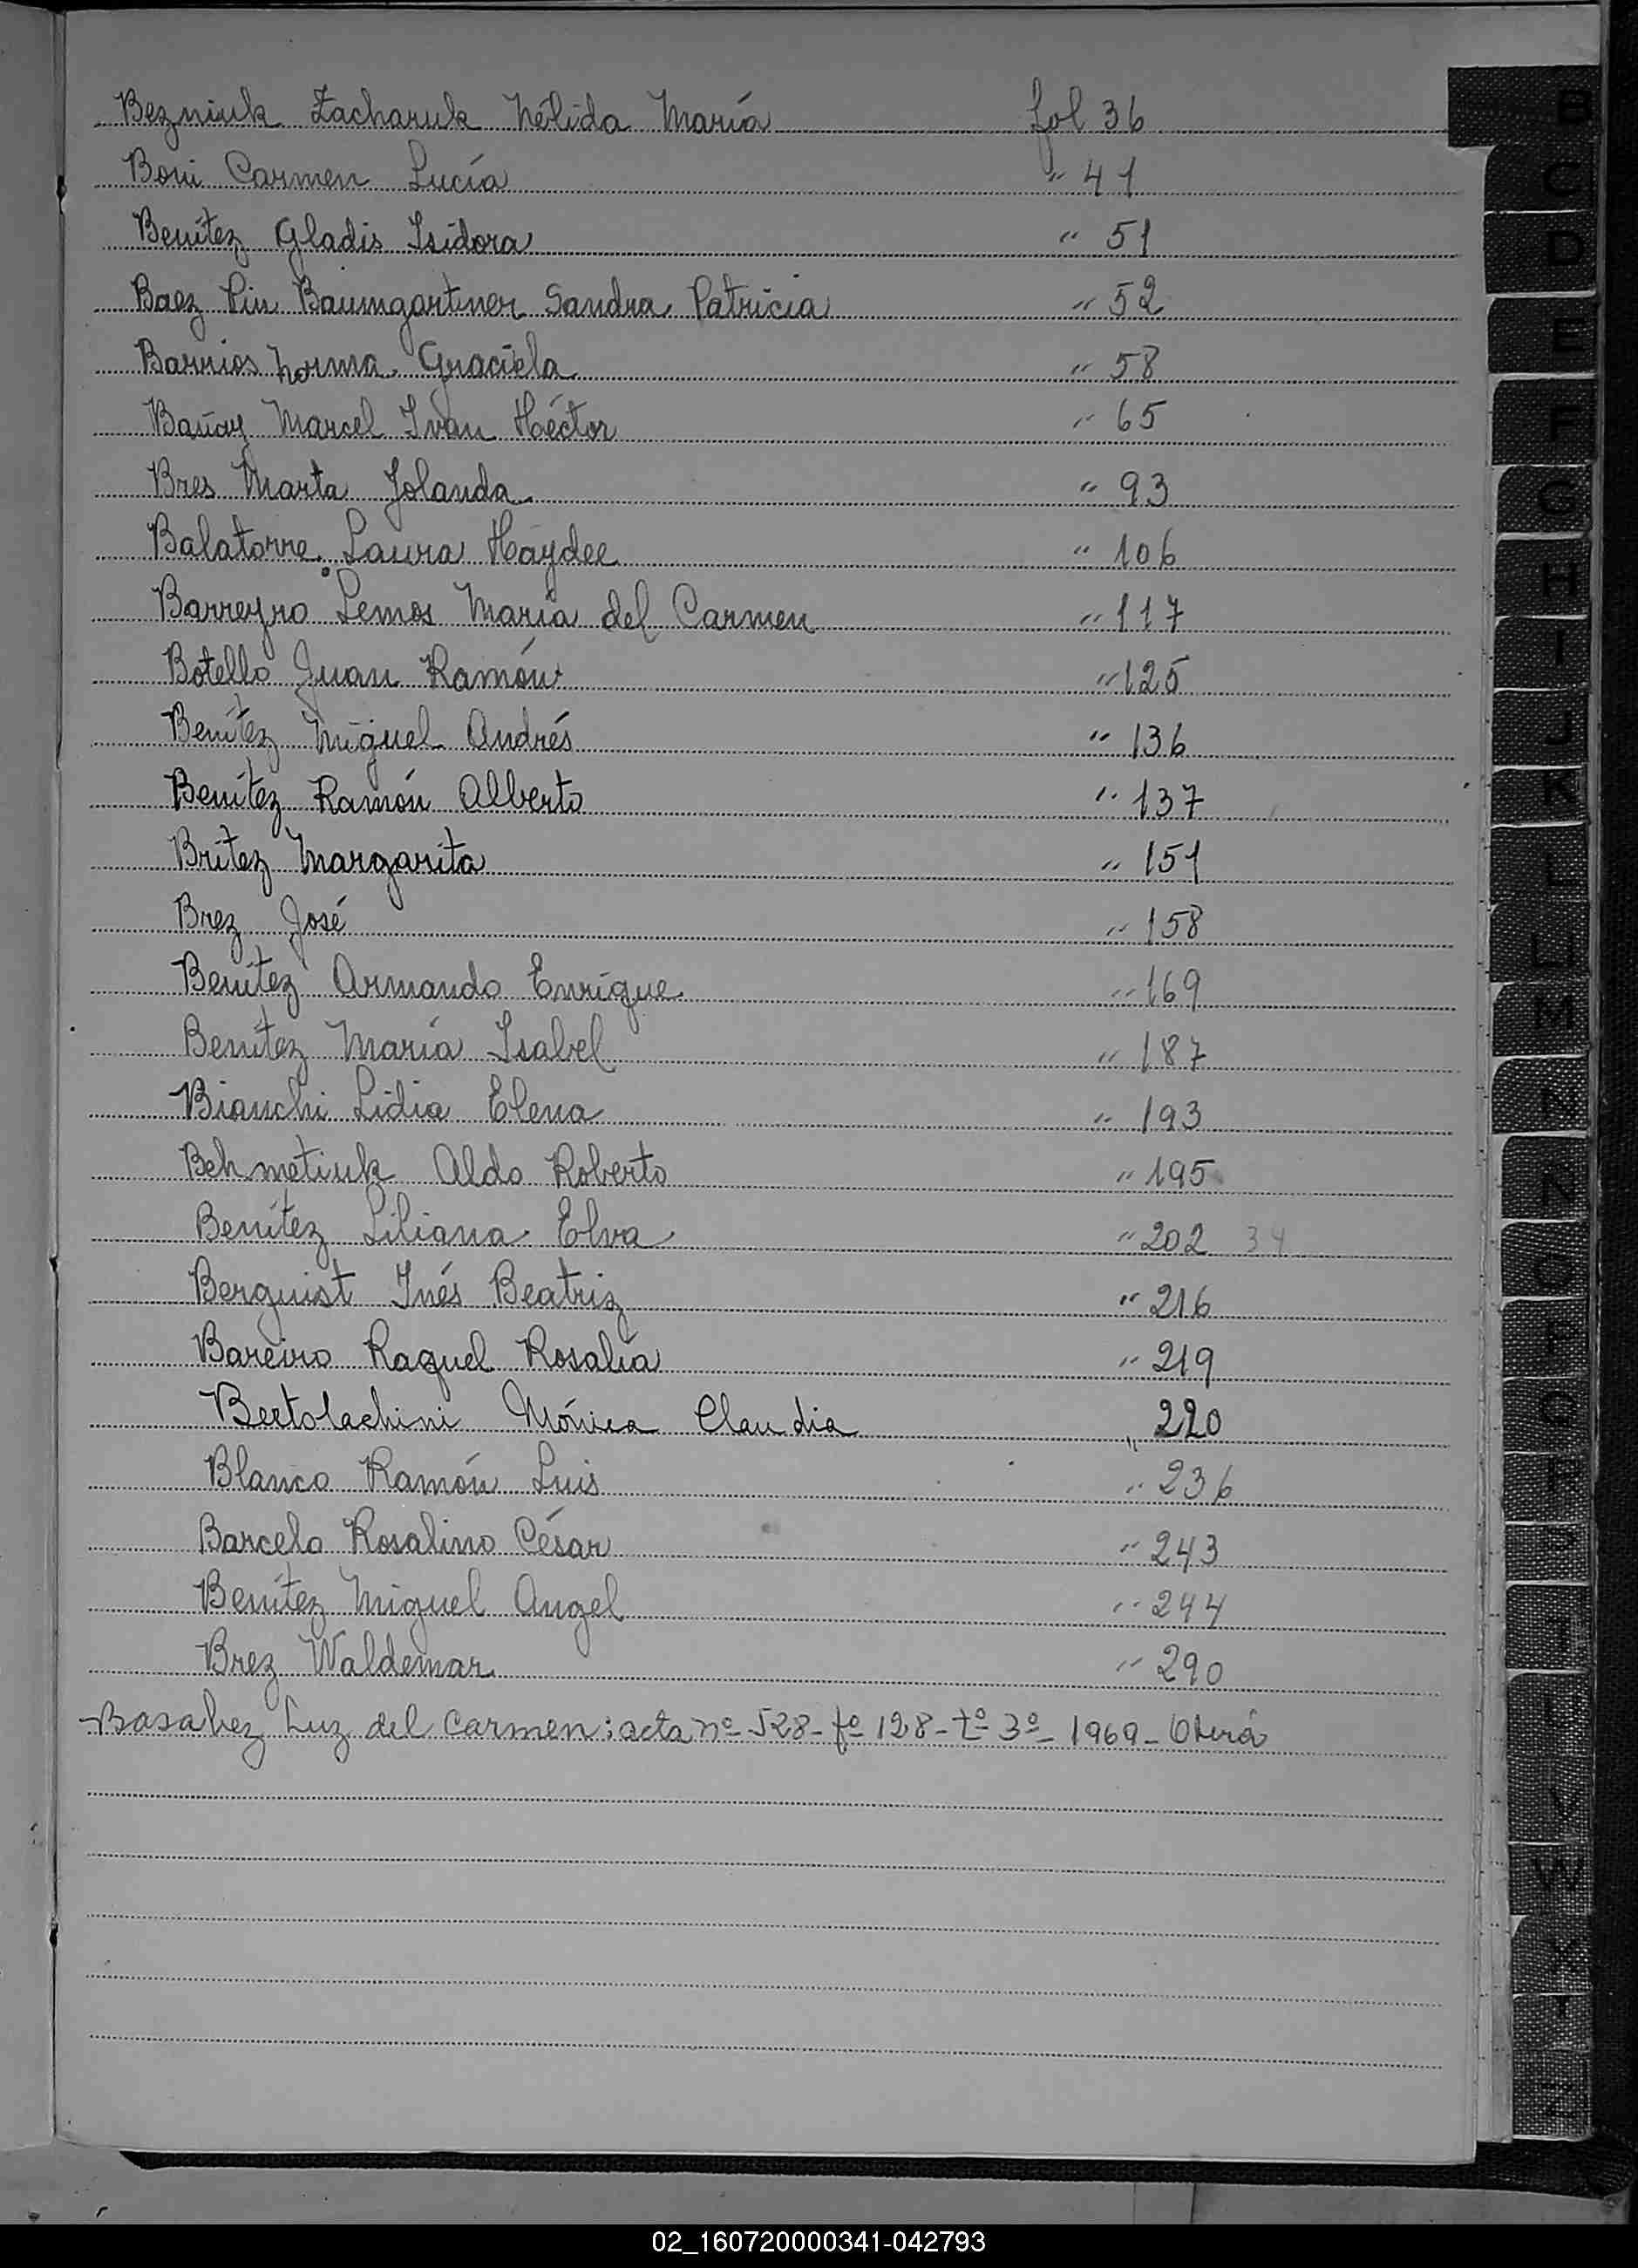 Bezniuk Zacharuk Nélida María fol 36
Boni Carmen Lucía " 41
Benítez Gladis Isidora " 51
Baez Pin Baumgartner Sandra Patricia " 52
Barrios Norma Graciela " 58
Marcel Iván Héctor " 65
Bres Marta Jolanda " 93
Balatorre Laura Haydee " 106
Barreyro Lemos María del Carmen " 117
Botello Juan Ramón " 125
Benítez Miguel Andrés " 136
Benítez Ramón Alberto " 137
Britez Margarita " 151
Brez José " 158
Benítez Armando Enrique " 169
Benítez María Isabel " 187
Bianchi Lidia Elena " 193
Behmetiuk Aldo Roberto " 195
Benítez Liliana Elva " 202 34
Berguist Inés Beatriz " 216
Bareiro Raquel Rosalía " 219
Bertolachini Mónica Claudia " 220
Blanco Ramón Luis " 236
Barcelo Rosalino César " 243
Benítez Miguel Angel " 244
Brez Waldemar " 290
Basabez Luz del Carmen: acta nº 528 - fº 128 - tº 3º - 1969 - Oberá
B
C
D
E
F
G
H
I
J
K
L
LL
M
N
Ñ
O
P
Q
R
S
T
U
V
W
X
Y
Z
02_160720000341-042793